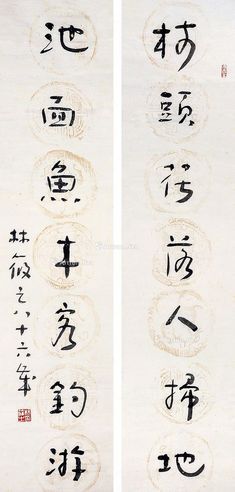 頭花落人掃地
池面魚客釣游
林筱之八十六歲